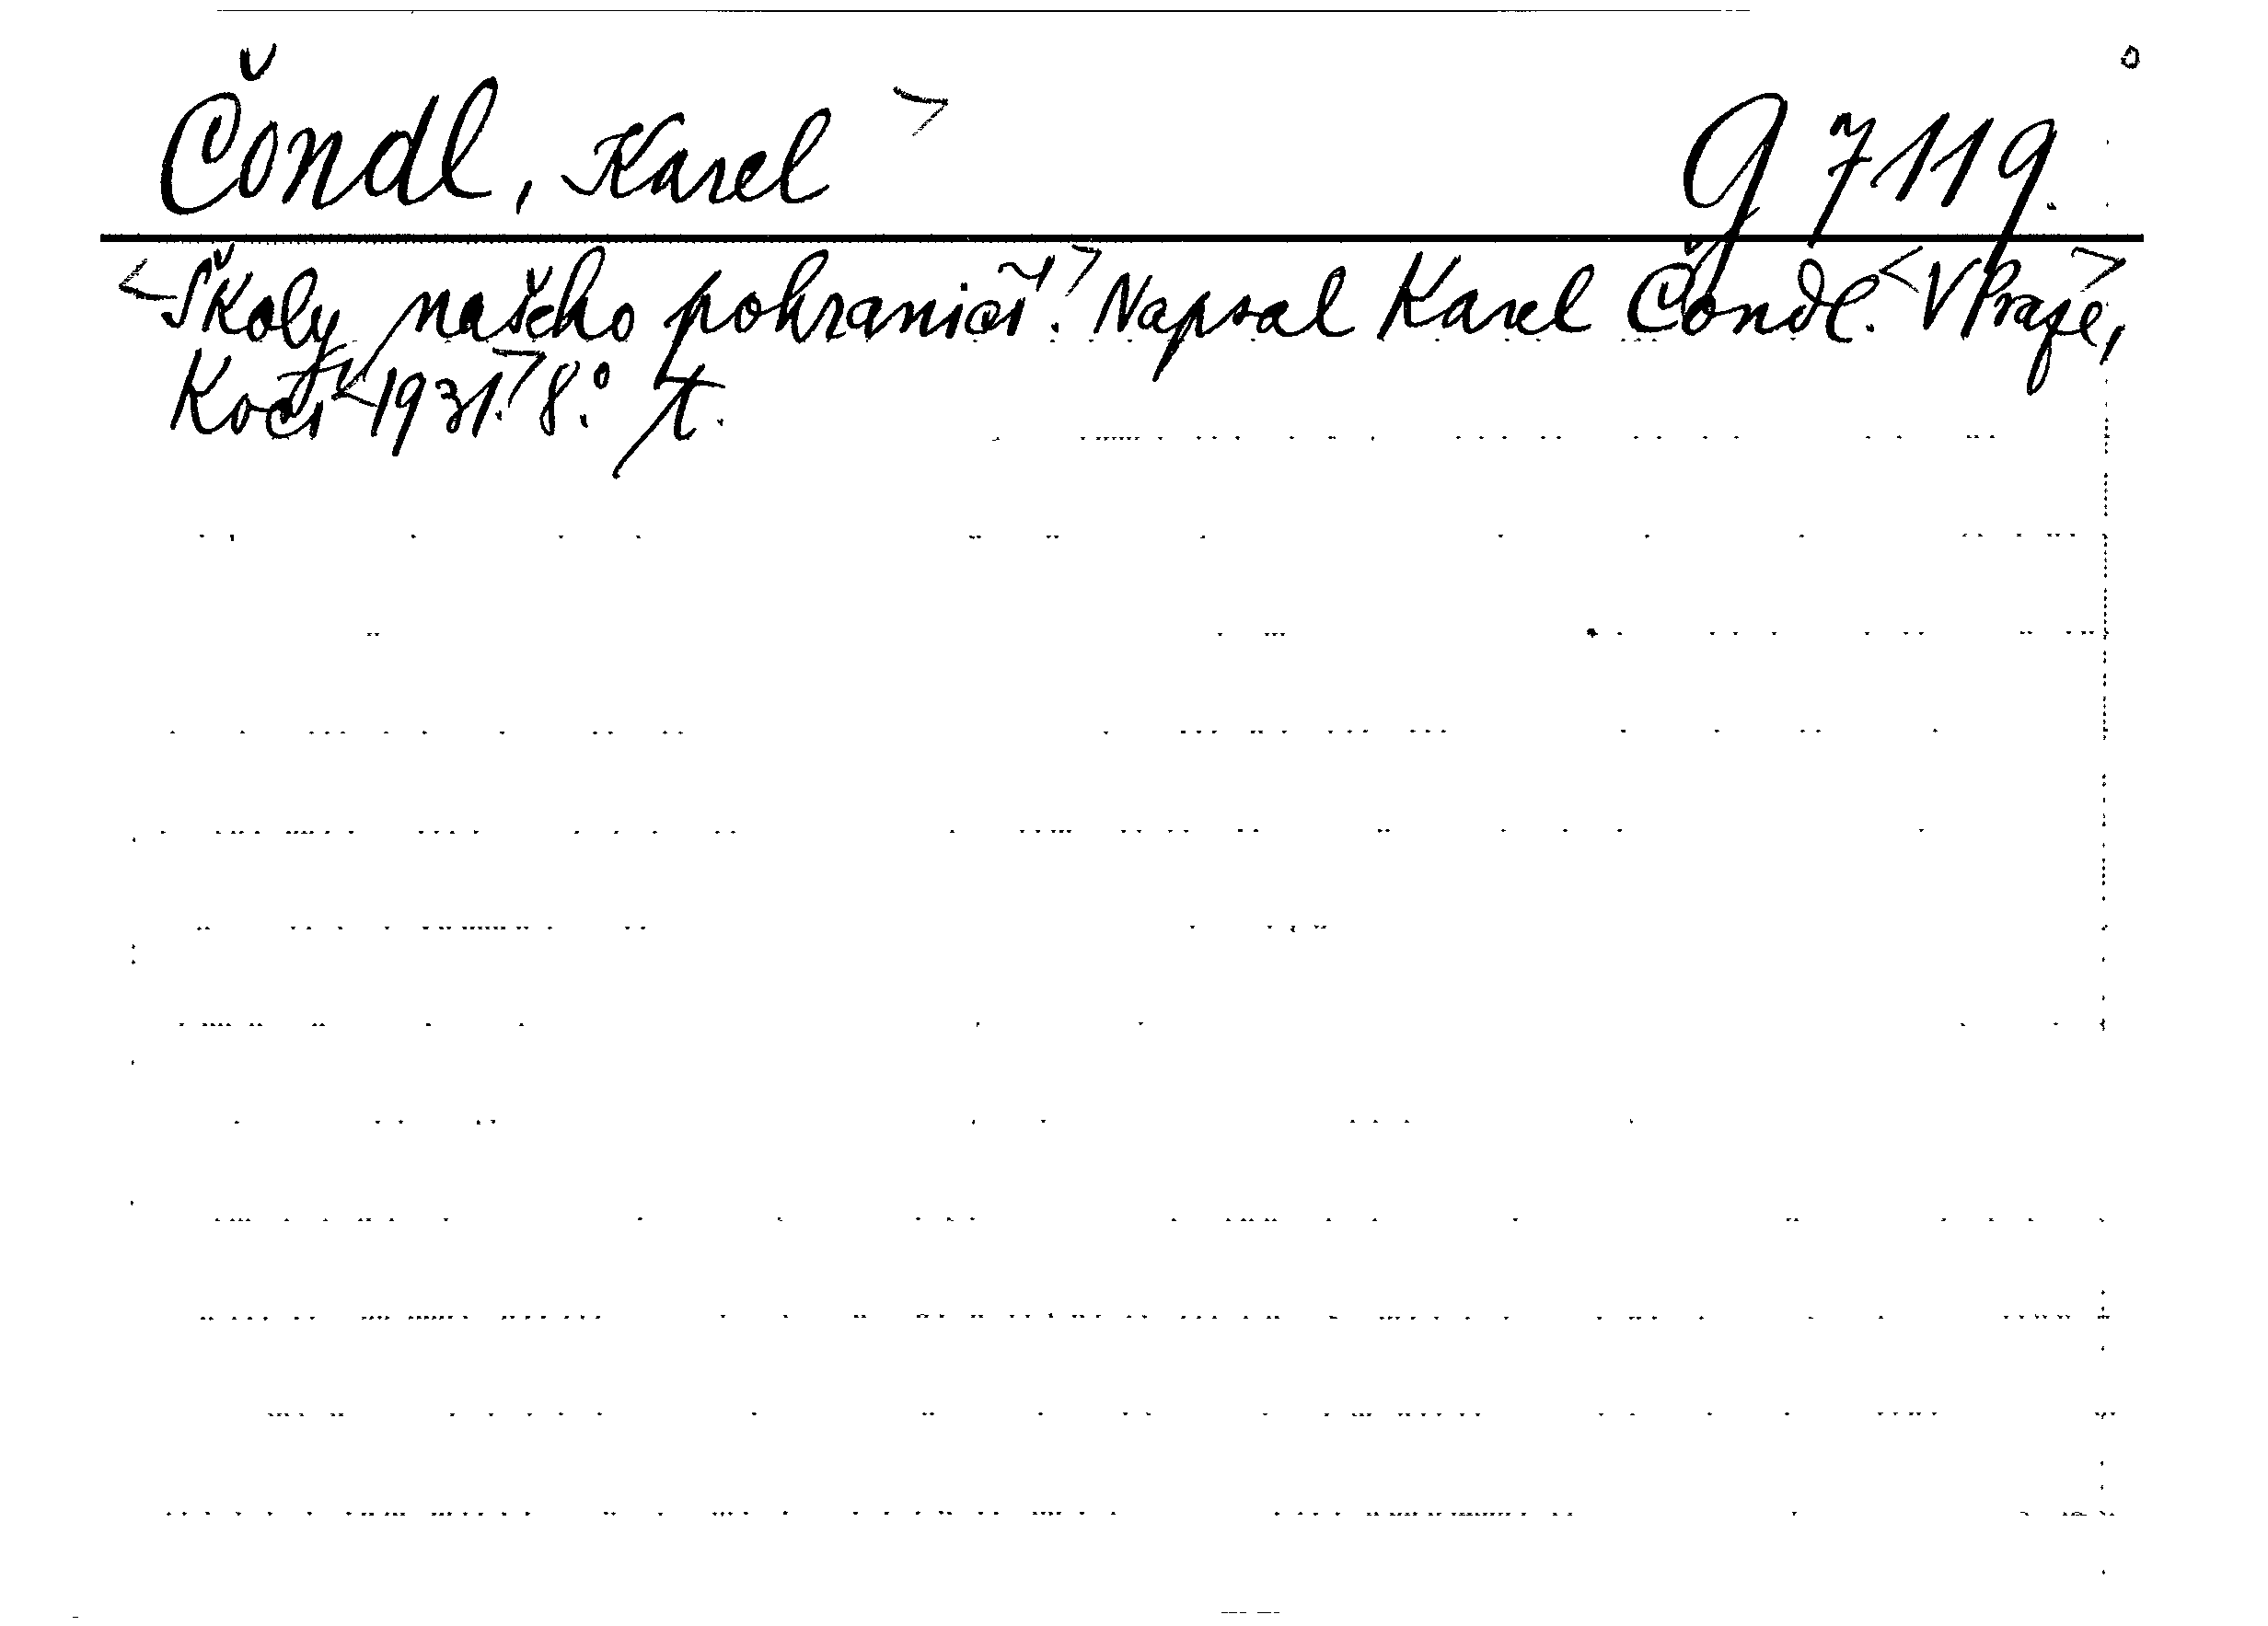 Čondl, Karel > G 7119.
<Školy našeho pohraničí.> Napsal Karel Čondl. <V Praze,>
Kočí <1931.> 8.° t.